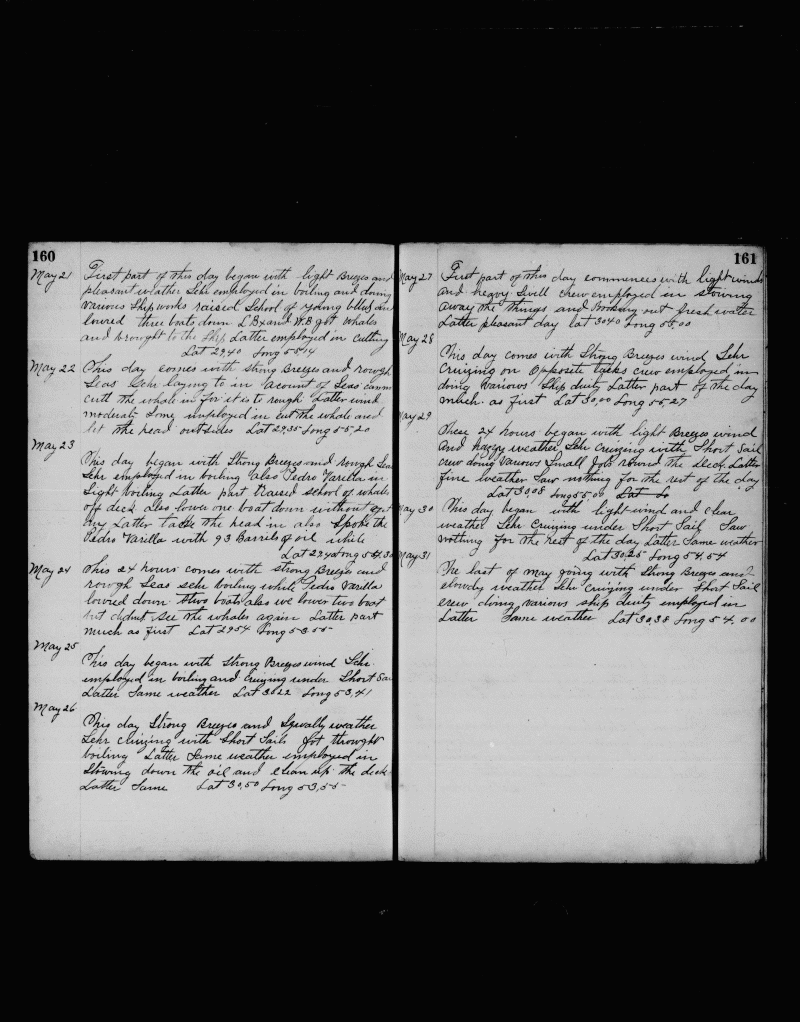 160
May 21 First part of this day began with light Breezes and
pleasant weather Schr employed in boiling and doing
various Ship works raised School of young blls and
lowred three boats down LB and W.B got whales
and brought to the Ship Latter employed in cutting
Lat 29,40 Long 55,14
May 22 This day comes with strong Breezes and rough
Seas Schr laying to in acount of Seas cann
cutt the whale in for it is to rough Latter wind
moderate Some employed in cut the whale and
let the head outsides Lat 29,35 Long 55,20
May 23
This day began with Strong Breezes and rough Sea
Schr employed in boiling also Pedro Varella in
Sight boiling Latter part Raised school of whales
off deck also lower one boat down without got
any Latter take the head in also Spoke the
Pedro Varilla with 93 Barrels of oil while
Lat 29,40 Long 54,30
May 24 This 24 hours comes with strong Breezes and
rough Seas schr boiling while Pedro Varella
lowred down two boats also we lower two boat
but didnt see the whales again Latter part
much as first Lat 2954 Long 53.55
May 25
This day began with Strong Breezes wind Schr
employed in boiling and Cruizing under Short Sa
Latter Same weather Lat 3022 Long 53,41
May 26
This day Strong Breezes and Squally weather
Schr cruizing with Short Sails got throught
boiling Latter Same weather employed in
Stowing down the oil and clean up the deck
Latter Same Lat 30,50 Long 53,55
161
May 27 First part of this day commences with light winds
and heavy Swell crew employed in stowing
away the things and breaking out fresh water
Latter pleasant day lat 3040 Long 55.00
May 28
This day comes with Strong Breezes wind Schr
Cruizing on Opposite tacks crew employed in
doing Various Ship duty Latter part of the day
much as first Lat 30,00 Long 55,27
May 29
These 24 hours began with light Breezes wind
And hazy weather Schr Cruizing with Short Sail
crew doing Various Small jobs round the deck Latter
fine weather Saw nothing for the rest of the day
Lat 30,08 Long 55,00 Lat Lo
May 30 This day began with light wind and clear
weather Schr Cruizing under Short Sail Saw
nothing for the rest of the day Latter Same weather
Lat 30,25 Long 54,54
May 31
The last of may going with Strong Breezes and
clowdy weather Schr Cruizing under Short Sail
crew doing various ship duty employed in
Latter Same weather Lat 30,38 Long 54.00